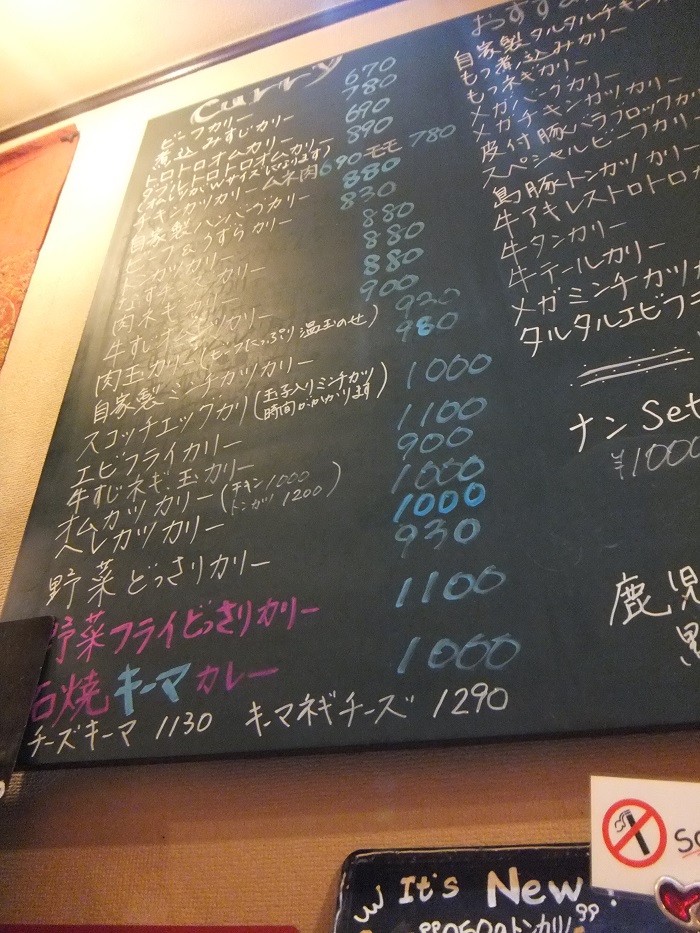 Curry
ビーフカリー 670
煮込みすじカリー 780
トロトロオムカリー 690
ダブルトロトロオムカリー 890
(オムレツがWサイズになります)
チキンカツカリー ムネ肉690 モモ 780
自家製ハンバーグカリー 880
ビーフ&うずらカリー 830
トンカツカリー 880
なす カリー 880
肉ネギカリー 880
牛すじ カリー 900
肉玉カリー(ビーフたっぷり温玉のせ) 920
自家製ミンチカツカリー 980
スコッチエッグカリー(玉子入りミンチカツ 1000
時間がかかります)
エビフライカリー 1100
牛すじネギ玉カリー 900
オムカツカリー(チキン1000 1000
トンカツ 1200)
ヘレカツカリー 1000
野菜どっさりカリー 930
野菜フライどっさりカリー 1100
石焼キーマカレー 1000
チーズキーマ 1130 キーマネギチーズ 1290
おすすめ
自家製タルタルチキン
もつ煮込みカリー
もつネギカリー
メガハンバーグカリー
メガチキンカツカリー
皮付豚バラブロックカ
スペシャルビーフカリ
島豚トンカツカリー
牛アキレストロトロカ
牛タンカリー
牛テールカリー
メガミンチカツカ
タルタルエビフラ
ナンSet
¥1000
鹿児
黒
It's New!